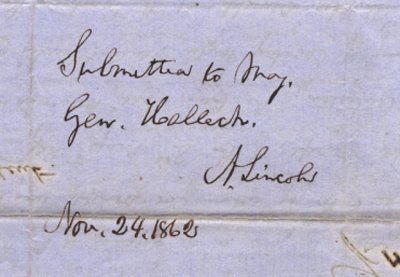 Submitted to Maj.
Gen. Halleck.
A. Lincoln
Nov. 24. 1862